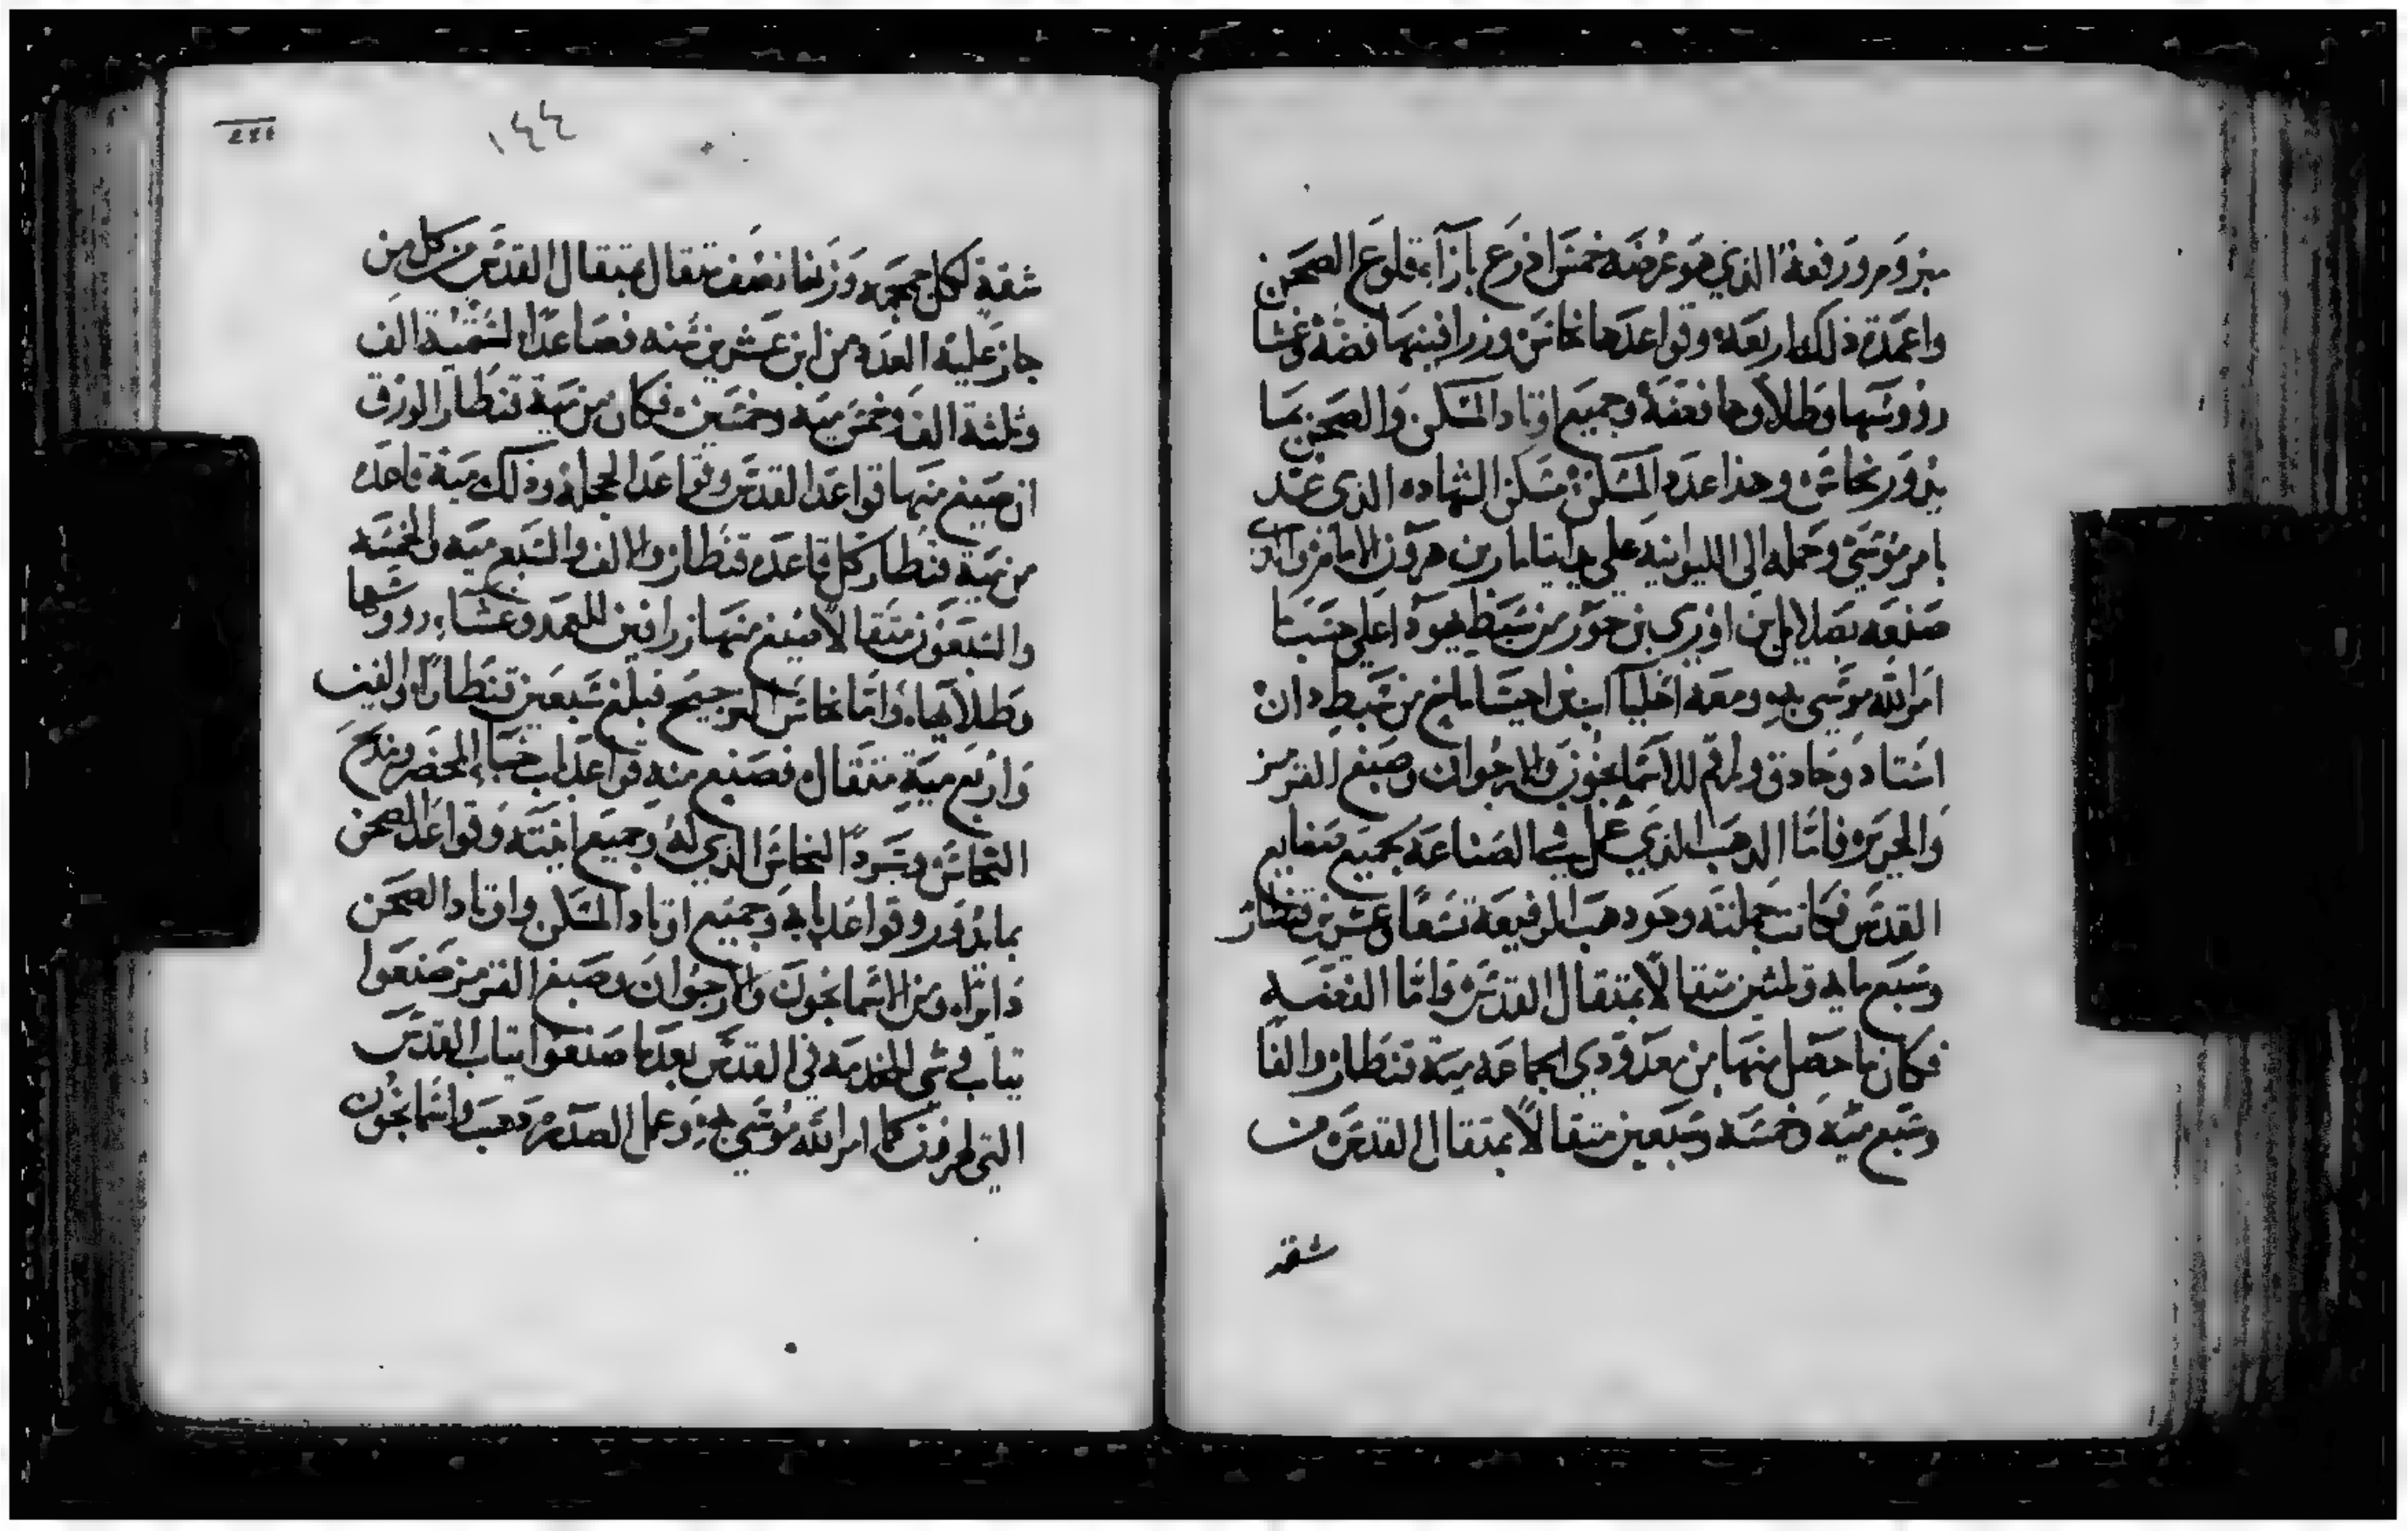 مبزوم ورفعة الذي هو عرضه خمس اذرع بازآ قلوع الصحن
واعمدة ذلك اربعة وقواعدها نحاس وزرافينها فضة وغشا
رووسها وطلاوها فضة وجميع اوتاد المسكن والصحن بما
يدور نحاس وهذا عدد المسكن مسكن الشهاده الذي عد
بامر موسى وحمله الى الليوانيه على يد ايتامار بن هرون الامام
صنعه بصلايل بن اوري بن حور من سبط يهودا على حسب ما
امر الله موسى به ومعه اخليا ابن احيساماخ من سبط دان
استاد وحادق وراقم للاسمانجون والارجوان وصبغ القرمز
والحرير فاما الدهب الذي عمل في الصناعة بجميع صنايع
القدس فكانت جملته وهو دهب الرفيعة تسعا وعشرين قنطار
وسبع مايه وثلثين مثقالا بمثقال القدس واما الفضه
فكان ما حصل منها من معدودي الجماعه مية قنطار والفا
وسبع ميه وخمسه وسبعين مثقالا بمثقال القدس من
شقة
١٤٤
شقة لكل جمجمه وزنها نصف مثقال بمثقال القدس من كل من
جاز عليه العدد من ابن عشرين سنه فصاعدا لستمية الف
وثلثة الف وخمس ميه وخمسين فكان من مية قنطار الورق
ان صيغ منها قواعد القدس وقواعد الحجله وذلك مية قاعده
من مية قنطار كل قاعده قنطار والالف والسبع ميه والخمسه
والسبعون مثقالا صيغ منها زرافين للعمد وغشا رووسها
وطلاها واما نحاس الترجيح فبلغ سبعين قنطارا والفين
واربع مية مثقال فصنع منه قواعد باب خبا المحضر ومذبح
النحاس وسرودا النحاس الذي له وجميع انيته وقواعد الصحن
بما يدور وقواعد بابه وجميع اوتاد المسكن واوتاد الصحن
دايرا ومن الاسمانجون والارجوان وصبغ القرمز صنعوا
تياب وشي للخدمه في القدس بعدما صنعوا تياب القدس
التي لهرون كما امر الله موسى به وعمل الصدره دهب واسمانجون